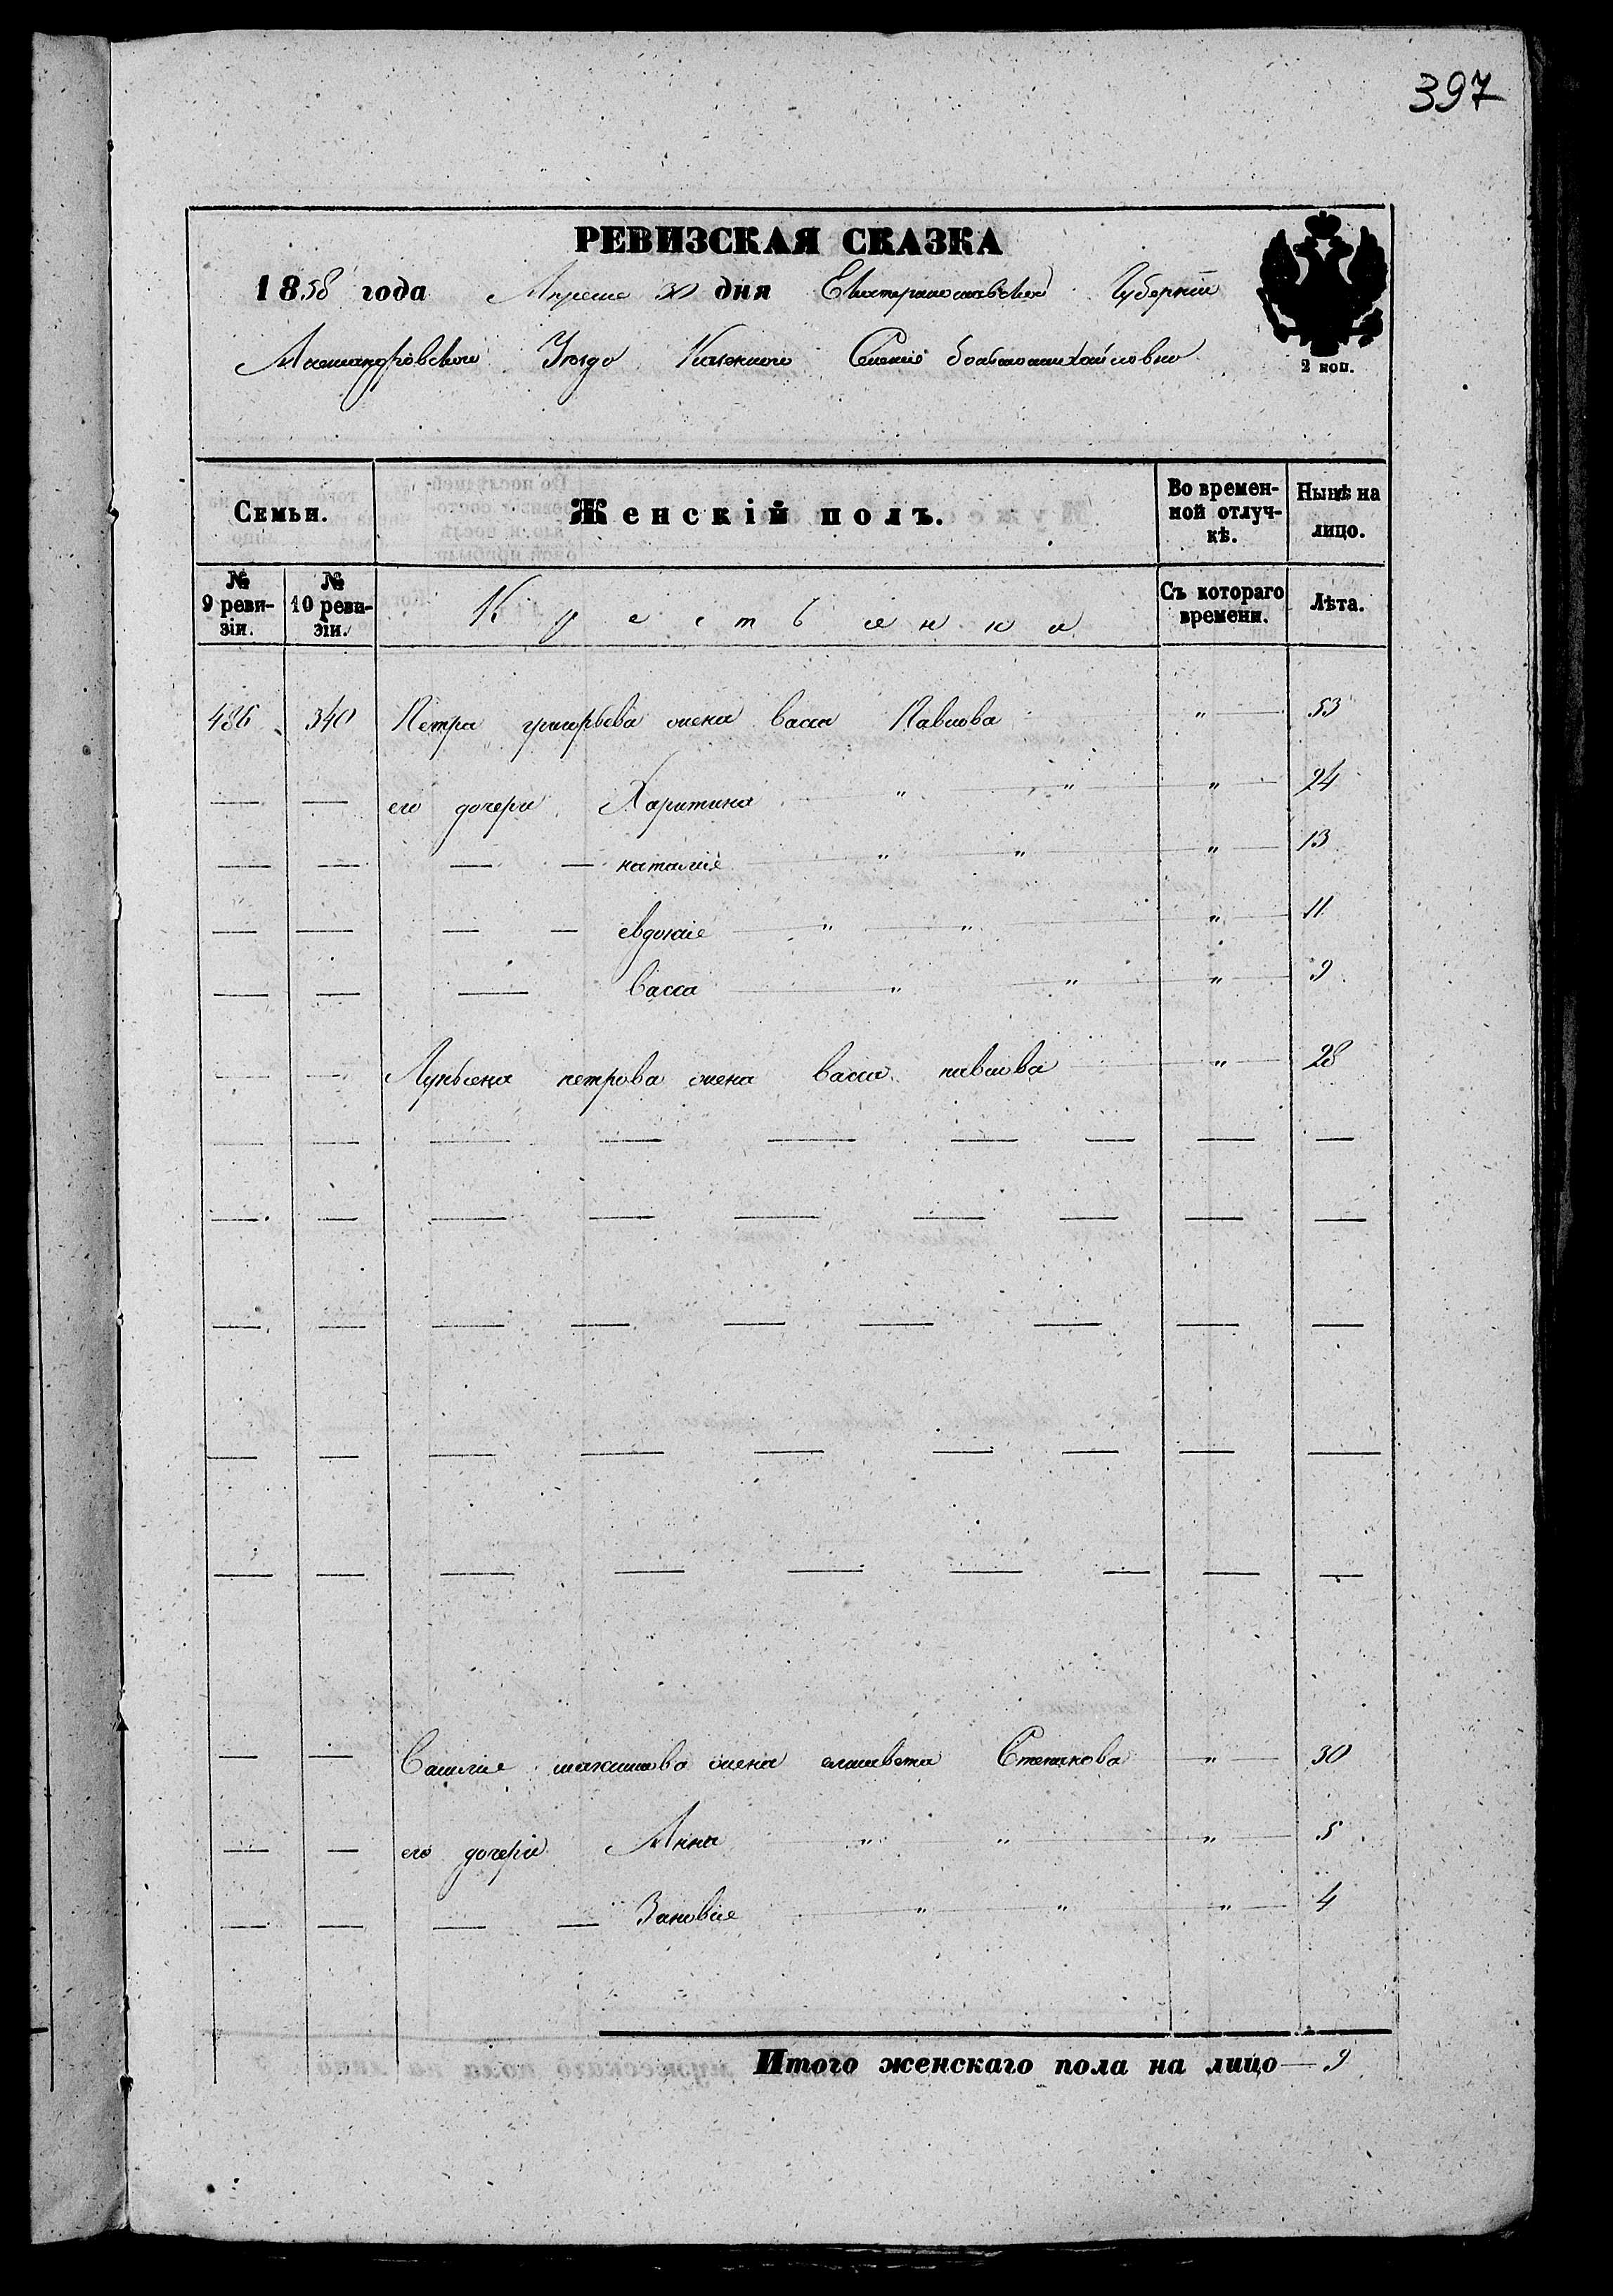 397
РЕВИЗСКАЯ СКАЗКА
1858 года Апреля 30 дня Екатеринославской Губернии
Александровского Уезда Казенного Селения большемихайловки
2 коп.
Семьи. Женскій полъ. Во временной отлучкѣ. Нынѣ на лицо.
№ 9 ревизіи. № 10 ревизіи. Крестьянки Съ котораго времени. Лѣта.
486 340 Петра григорьева жена васса Павлова " 53
— — его дочери Харитина " " " 24
— — — — наталия " " " 13
— — — — евдокия " " " 11
— — — васса " " " 9
— — Лукьяна петрова жена васса павлова " 28
— — Василия максимова жена елисавета Степанова " 30
— — его дочери Анна " " " 5
— — — — Зановия " " " 4
Итого женскаго пола на лицо — 9